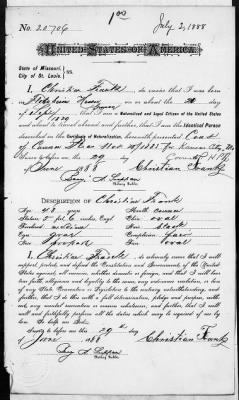 100
No. 20706 July 2, 1888
UNITED STATES OF AMERICA.
State of Missouri,
City of St. Louis. } ss.
I, Christian Frank, do swear that I was born
in Hesse on or about the day
of that I am a Naturalized and Loyal Citizen of the United States
and about to travel abroad and further, that I am the Identical Person
described in the Certificate of Naturalization, herewith presented Court
of Common Pleas Nov 1881 Kansas City, Mo
Sworn to before me this 29 day
of June 1888 Christian Frank
Notary Public
DESCRIPTION OF Christian Frank
Age 48 years Mouth
Stature 5 feet 6 inches, Engl. Chin oval
Forehead medium Hair black
Eyes gray Complexion fair
Nose Face oval
I, Christian Frank, do solemnly swear that I will
support, protect, and defend the Constitution and Government of the United
States against all enemies, whether domestic or foreign, and that I will bear
true faith, allegiance and loyalty to the same, any ordinance, resolution, or law
of any State Convention or Legislature to the contrary notwithstanding, and
further, that I do this with a full determination, pledge and purpose, without
any mental reservation or evasion whatsoever, and further, that I will
well and faithfully perform all the duties which may be required of me by
law. So help me God.
Sworn to before me this 29th day
of June 1888 Christian Frank
Notary Public